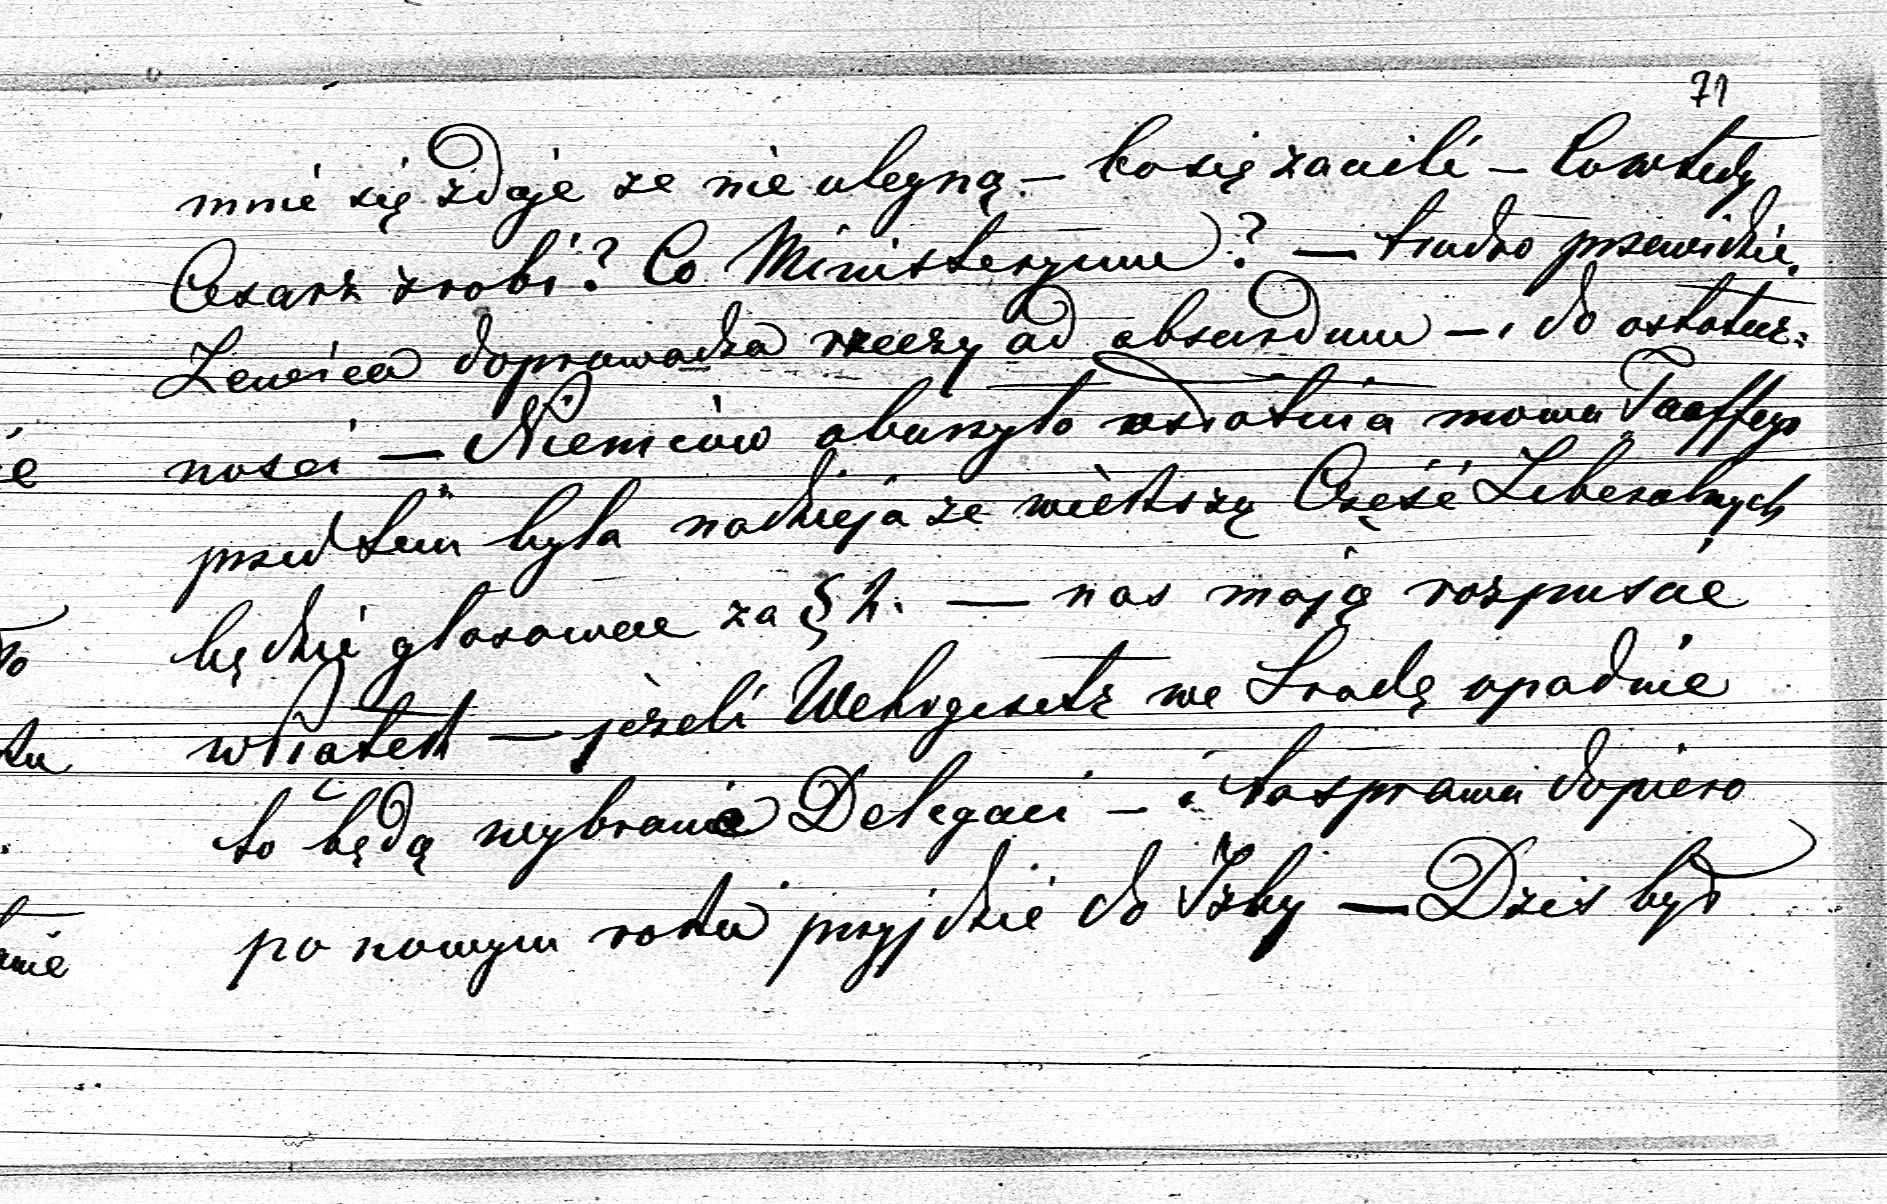 71
mnie się zdaje ze nie ulegną — bo się zacieli — Co wtedy
Cesarz zrobi? Co Ministeryum? — trudno przewidzie.
Lewica doprowadza rzeczy ad absurdum — i do ostatecz=
nosci — Niemców oburzyło ostatnia mowa Taaffego
przed tem była nadzieja ze większą Część Liberalnych
będzie głosowac za § 2. — nas mają rozpuscic
w Piatek — jezeli Wehrgesetz we Srodę upadnie
to będą wybranie Delegaci — i ta sprawa dopiero
po nowym roku przyjdzie do Izby — Dzis był
ie
tu